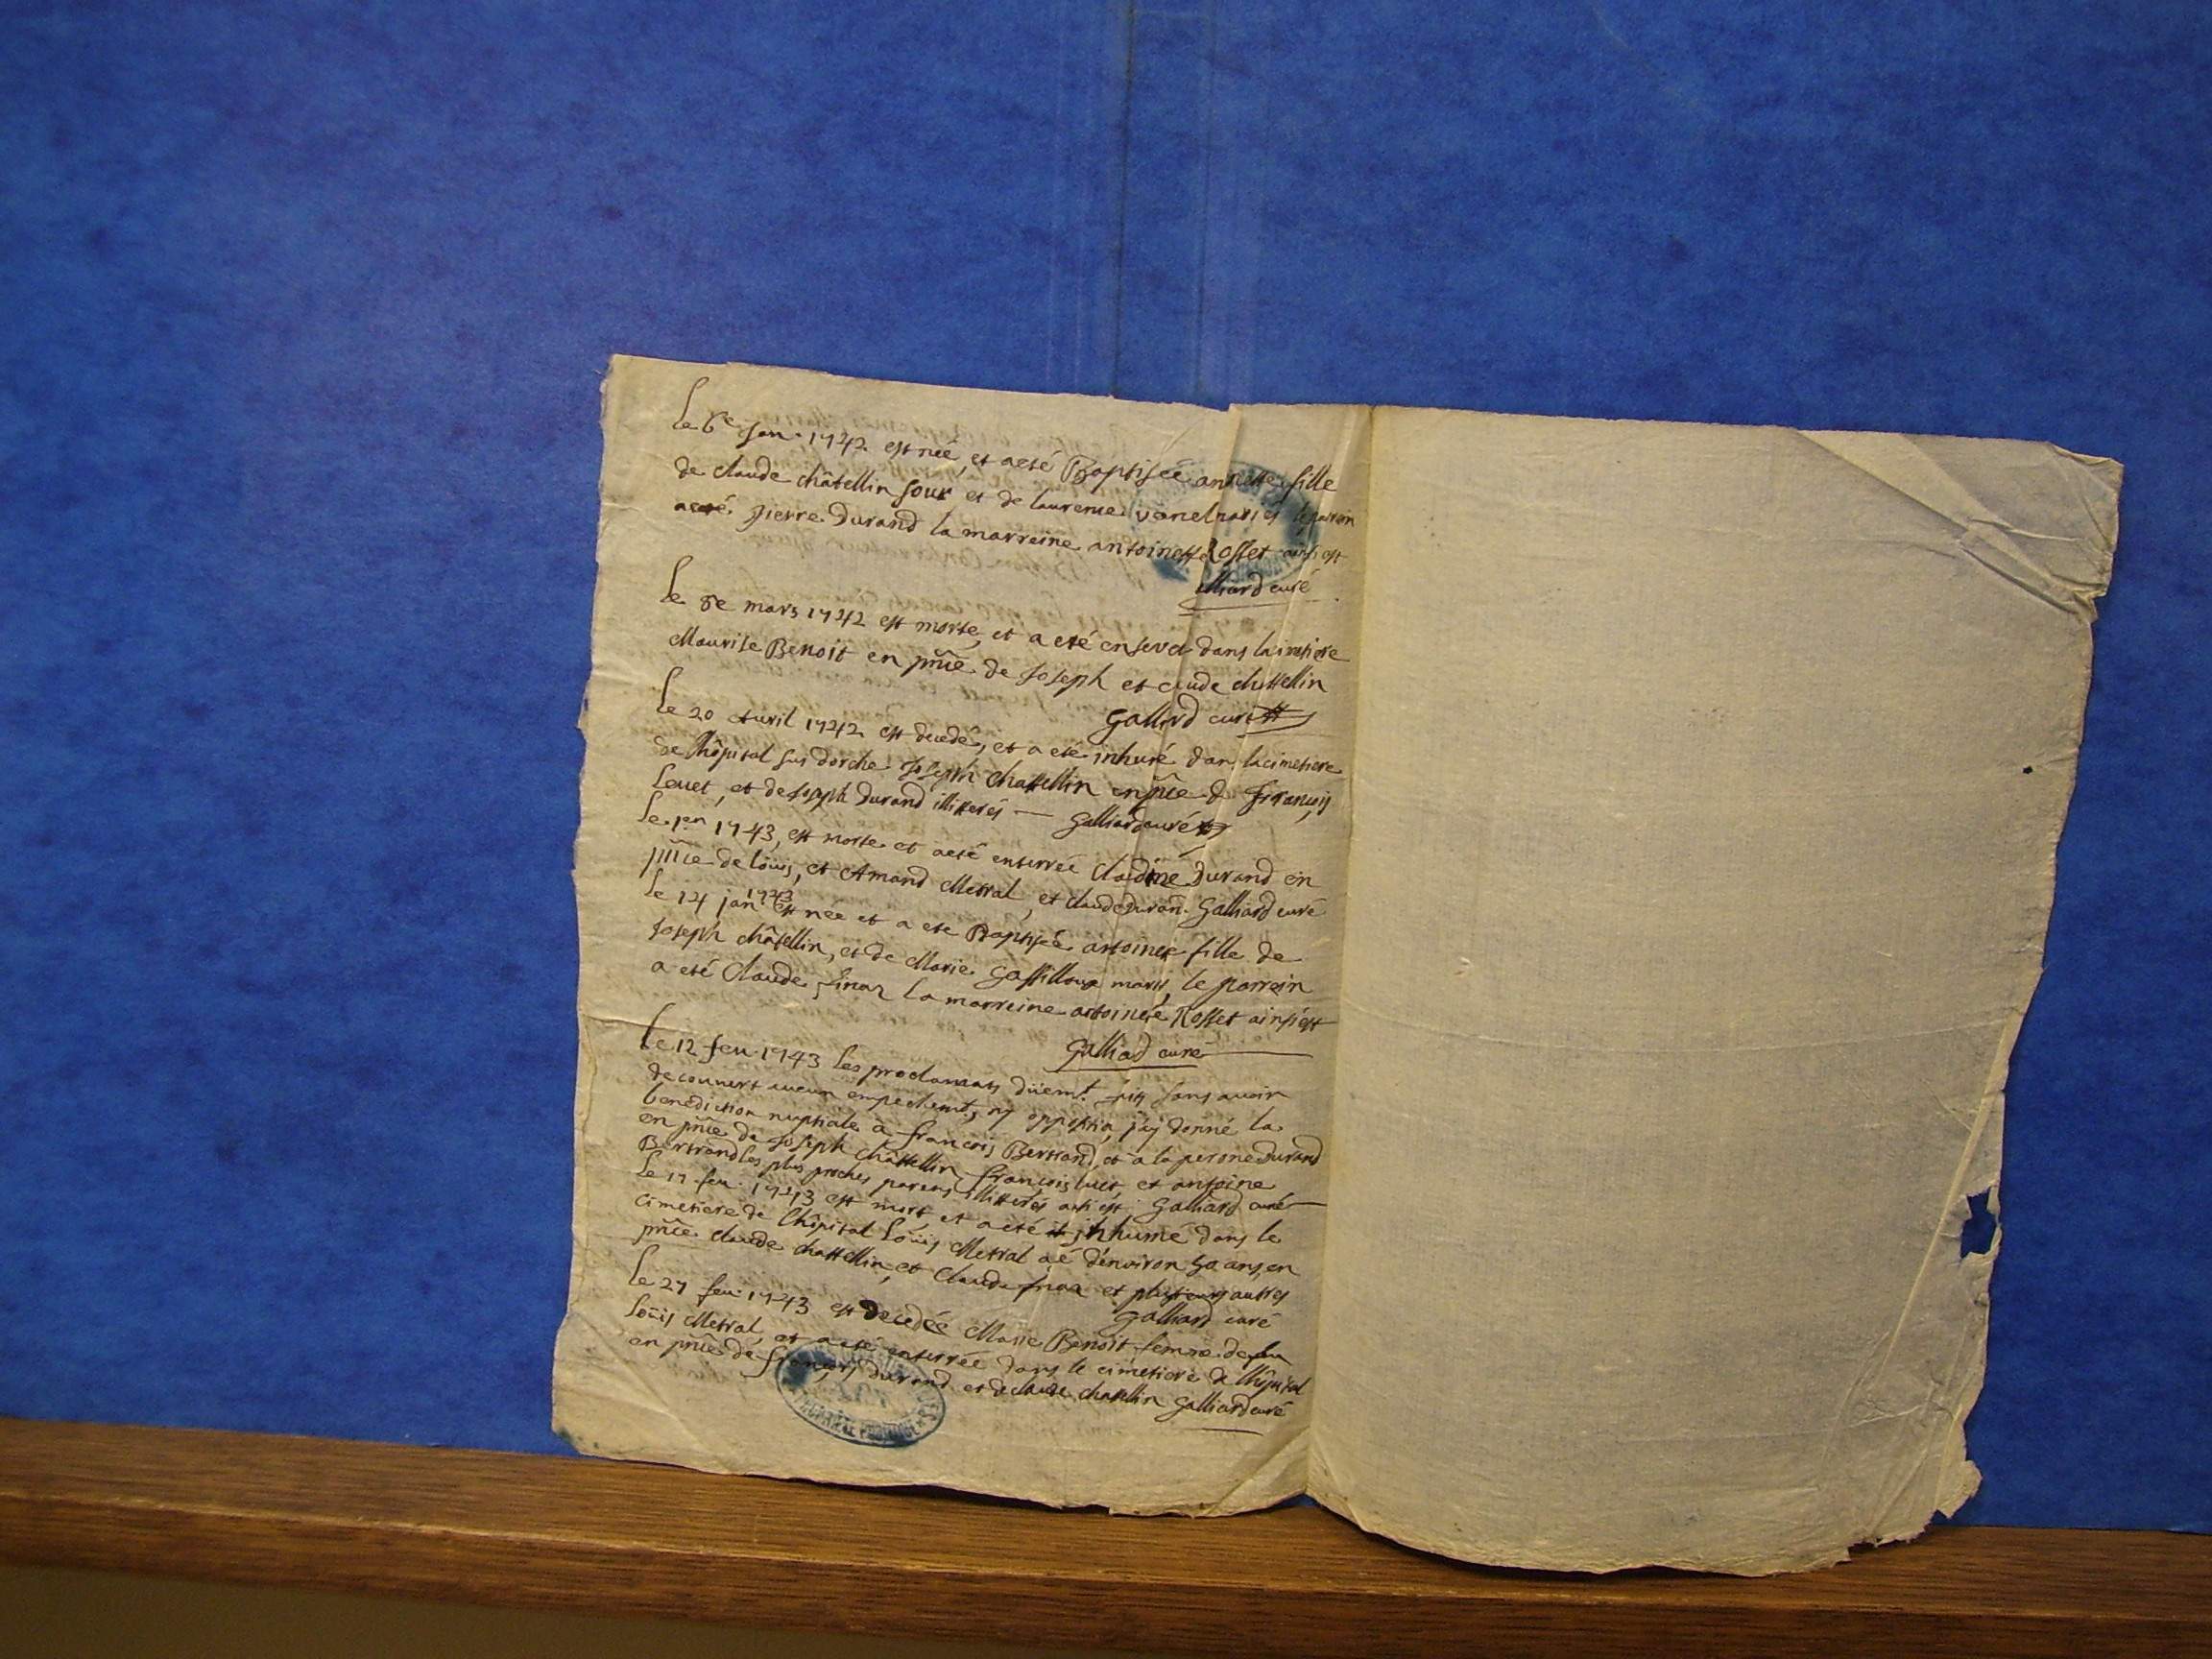 Le 6e jan. 1742 est née, et a eté Baptisée antoinette fille
de claude châtellin sour et de laurence vanel mariés le parrein
a eté pierre Durand la marreine antoinette Rosset ainsi est
Galliard curé
Le 8e mars 1742 est morte, et a eté ensevel dans la cimetiere
Maurise Benoit en pñce de Joseph et claude chattellin
Galliard curé
Le 20 avril 1742 est decedé, et a eté inhumé dans la cimetiere
de lhôpital sus dorche Joseph Chattellin en pñce de François
Louet, et de Joseph Durand illitterés — Galliard curé
Le 1743, est morte et a eté enterrée Claudine Durand en
pñce de loüis, et Amand Metral, et claude Duran. Galliard curé
Le 14 jan 1743 est née et a ete Baptisée antoinete fille de
Joseph châtellin, et de Marie mariés, le parrein
a eté Claude finaz la marreine antoinete Rosset ainsi est
Galliad curé
Le 12 feu. 1743 les proclamats düemt. fits sans auoir
decouuert aucun empechemt, ny oppositiõ, j'ay donné la
benediction nuptiale à françois Bertrand, et à la perone Durand
en pñce de Joseph Châttellin françois luet et antoine
Bertrand les plus proches parens illitterés ainsi est Galliard curé
Le 17 feu. 1743 est mort, et a eté inhumé dans le
cimetiere de lhôpital Loüis Metral agé d'enuiron ans, en
pñce claude chattellin, et Claude finaz et plusieurs autres
Galliard curé
Le 27 feu. 1743 est decedée Marie Benoit femme de feu
Loüis Metral, et a eté enterrée dans le cimetiere de lhôpital
en pñce de françois Durand et de claude chatellin Galliard curé